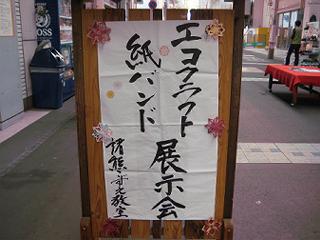 エコクラフト
紙バンド
展示会
教室
BOSS